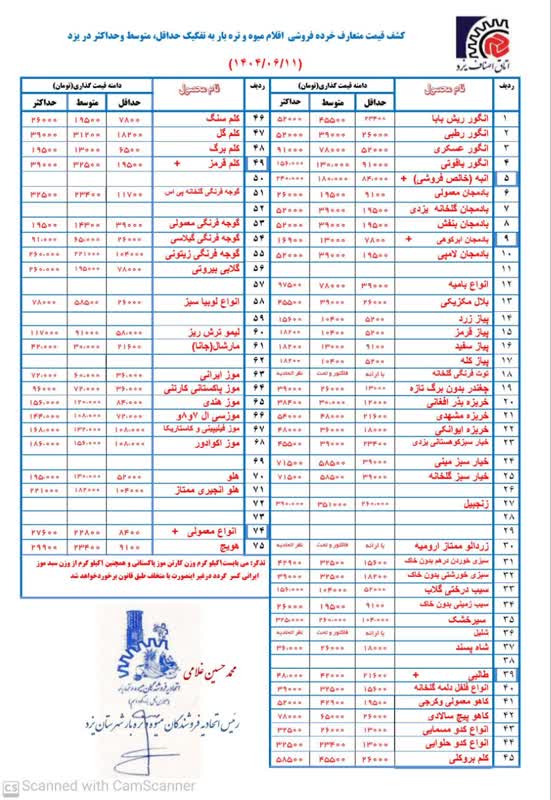 کشف قیمت متعارف خرده فروشی اقلام میوه و تره بار به تفکیک حداقل، متوسط وحداکثر در یزد
(۱۴۰۴/۰۶/۱۱)
اتاق اصناف یزد
ردیف نام محصول دامنه قیمت گذاری(تومان)
حداقل متوسط حداکثر
۱ انگور ریش بابا ۲۳۴۰۰ ۴۵۵۰۰ ۵۲۰۰۰
۲ انگور رطبی ۲۶۰۰۰ ۳۹۰۰۰ ۵۲۰۰۰
۳ انگور عسکری ۵۲۰۰۰ ۷۸۰۰۰ ۹۱۰۰۰
۴ انگور یاقوتی ۹۱۰۰۰ ۱۳۰.۰۰۰ ۱۵۶.۰۰۰
۵ انبه (خالص فروشی) + ۸۴.۰۰۰ ۱۸۰.۰۰۰ ۲۴۰.۰۰۰
۶ بادمجان معمولی ۹۱۰۰ ۱۹۵۰۰ ۲۶۰۰۰
۷ بادمجان گلخانه یزدی ۱۹۵۰۰ ۳۹۰۰۰ ۵۲۰۰۰
۸ بادمجان بنفش ۱۹۵۰۰ ۳۹۰۰۰ ۵۲۰۰۰
۹ بادمجان ابرکوهی + ۷۸۰۰ ۱۳۰۰۰ ۱۶۹۰۰
۱۰ بادمجان لامپی ۱۹۵۰۰ ۳۹۰۰۰ ۵۲۰۰۰
۱۱
۱۲ انواع بامیه ۳۹۰۰۰ ۷۸۰۰۰ ۹۷۵۰۰
۱۳ بلال مکزیکی ۲۶۰۰۰ ۳۹۰۰۰ ۴۵۵۰۰
۱۴ پیاز زرد ۵۲۰۰ ۱۰۴۰۰ ۱۵۶۰۰
۱۵ پیاز قرمز ۵۲۰۰ ۱۰۴۰۰ ۱۸۲۰۰
۱۶ پیاز سفید ۹۱۰۰ ۱۳۰۰۰ ۱۸۲۰۰
۱۷ پیاز کله ۵۲۰۰ ۱۰۴۰۰ ۱۸۲۰۰
۱۸ توت فرنگی گلخانه با ارائه فاکتور و تحت نظر اتحادیه
۱۹ چغندر بدون برگ تازه ۱۳۰۰۰ ۲۶۰۰۰ ۳۹۰۰۰
۲۰ خربزه بذر افغانی ۱۲۰۰۰ ۳۰.۰۰۰ ۳۸۴۰۰
۲۱ خربزه مشهدی ۲۱۶۰۰ ۴۸۰۰۰ ۵۴۰۰۰
۲۲ خربزه ایوانکی ۱۸۰۰۰ ۳۶۰۰۰ ۴۸۰۰۰
۲۳ خیار سبزکوهستانی یزدی ۲۳۴۰۰ ۳۹۰۰۰ ۴۵۵۰۰
۲۴ خیار سبز مینی ۳۹۰۰۰ ۵۸۵۰۰ ۷۱۵۰۰
۲۵ خیار سبز گلخانه ۳۹۰۰۰ ۵۸۵۰۰ ۷۱۵۰۰
۲۶
۲۷ زنجبیل ۲۶۰.۰۰۰ ۳۵۱۰۰۰ ۳۹۰.۰۰۰
۲۸
۲۹
۳۰ زردآلو ممتاز ارومیه با ارائه فاکتور و تحت نظر اتحادیه
۳۱ سبزی خوردن درهم بدون خاک ۱۵۶۰۰ ۳۲۵۰۰ ۴۲۹۰۰
۳۲ سبزی خورشتی بدون خاک ۱۸۲۰۰ ۳۲۵۰۰ ۳۹۰۰۰
۳۳ سیب درختی گلاب ۵۲۰۰۰ ۱۰۴۰۰۰ ۱۵۶.۰۰۰
۳۴ سیب زمینی بدون خاک ۹۱۰۰ ۱۹۵۰۰ ۲۶۰۰۰
۳۵ سیرخشک ۱۰۴.۰۰۰ ۲۶۰.۰۰۰ ۳۲۵.۰۰۰
۳۶ شلیل با ارائه فاکتور و تحت نظر اتحادیه
۳۷ شاه پسند ۱۸۰۰۰ ۲۶۰۰۰ ۳۶.۰۰۰
۳۸
۳۹ طالبی + ۲۱۶۰۰ ۴۲۰۰۰ ۴۸.۰۰۰
۴۰ انواع فلفل دلمه گلخانه ۱۵۶۰۰ ۳۲۵۰۰ ۳۹۰۰۰
۴۱ کاهو معمولی وکرجی ۱۹۵۰۰ ۴۲۹۰۰ ۵۲۰۰۰
۴۲ کاهو پیچ سالادی ۲۶۰۰۰ ۶۵۰۰۰ ۷۸۰۰۰
۴۳ انواع کدو مسمایی ۱۳۰۰۰ ۲۶۰۰۰ ۳۲۵۰۰
۴۴ انواع کدو حلوایی ۱۳۰۰۰ ۲۳۴۰۰ ۳۲۵۰۰
۴۵ کلم بروکلی ۲۶۰۰۰ ۴۵۵۰۰ ۵۸۵۰۰
ردیف نام محصول دامنه قیمت گذاری(تومان)
حداقل متوسط حداکثر
۴۶ کلم سنگ ۷۸۰۰ ۱۹۵۰۰ ۲۶۰۰۰
۴۷ کلم گل ۱۸۲۰۰ ۳۱۲۰۰ ۳۹۰۰۰
۴۸ کلم برگ ۶۵۰۰ ۱۳۰۰۰ ۱۹۵۰۰
۴۹ کلم قرمز + ۱۹۵۰۰ ۳۲۵۰۰ ۳۹۰۰۰
۵۰
۵۱ گوجه فرنگی گلخانه پی اس ۱۱۷۰۰ ۲۳۴۰۰ ۳۲۵۰۰
۵۲
۵۳ گوجه فرنگی معمولی ۳۹۰۰۰ ۱۴۳۰۰ ۱۹۵۰۰
۵۴ گوجه فرنگی گیلاسی ۲۶۰۰۰ ۶۵.۰۰۰ ۹۱.۰۰۰
۵۵ گوجه فرنگی زیتونی ۱۰۴۰۰۰ ۲۲۱۰۰۰ ۲۶۰.۰۰۰
۵۶ گلابی بیروتی ۷۸۰۰۰ ۱۹۵۰۰۰ ۲۶۰.۰۰۰
۵۷
۵۸ انواع لوبیا سبز ۲۶۰۰۰ ۵۸۵۰۰ ۷۸۰۰۰
۵۹
۶۰ لیمو ترش ریز ۵۸.۰۰۰ ۹۱۰۰۰ ۱۱۷۰۰۰
۶۱ مارشال(جانا) ۲۱۶۰۰ ۳۰.۰۰۰ ۴۲.۰۰۰
۶۲
۶۳ موز ایرانی ۳۶.۰۰۰ ۶۰.۰۰۰ ۷۲.۰۰۰
۶۴ موز پاکستانی کارتنی ۳۶.۰۰۰ ۷۲.۰۰۰ ۹۶۰۰۰
۶۵ موز هندی ۸۴.۰۰۰ ۱۲۰.۰۰۰ ۱۵۶.۰۰۰
۶۶ موزسی ال ۷و۸و ۷۲.۰۰۰ ۱۰۸.۰۰۰ ۱۴۴.۰۰۰
۶۷ موز فیلیپینی و کاستاریکا ۱۰۸.۰۰۰ ۱۳۲.۰۰۰ ۱۶۸.۰۰۰
۶۸ موز اکوادور ۱۰۸.۰۰۰ ۱۵۶.۰۰۰ ۱۸۶.۰۰۰
۶۹
۷۰ هلو ۵۲۰۰۰ ۱۳۰.۰۰۰ ۱۹۵.۰۰۰
۷۱ هلو انجیری ممتاز ۱۰۴۰۰۰ ۱۸۲۰۰۰ ۲۲۱۰۰۰
۷۲
۷۳
۷۴ انواع معمولی + ۸۴۰۰ ۲۲۸۰۰ ۲۷۶۰۰
۷۵ هویج ۹۱۰۰ ۲۳۴۰۰ ۲۹۹۰۰
تذکر: می بایست۱کیلو گرم وزن کارتن موز پاکستانی و همچنین ۱کیلو گرم از وزن سبد موز
ایرانی کسر گردد درغیر اینصورت با متخلف طبق قانون برخوردخواهد شد
محمد حسین غلامی
رئیس اتحادیه فروشندگان میوه و تره بار شهرستان یزد
CS Scanned with CamScanner